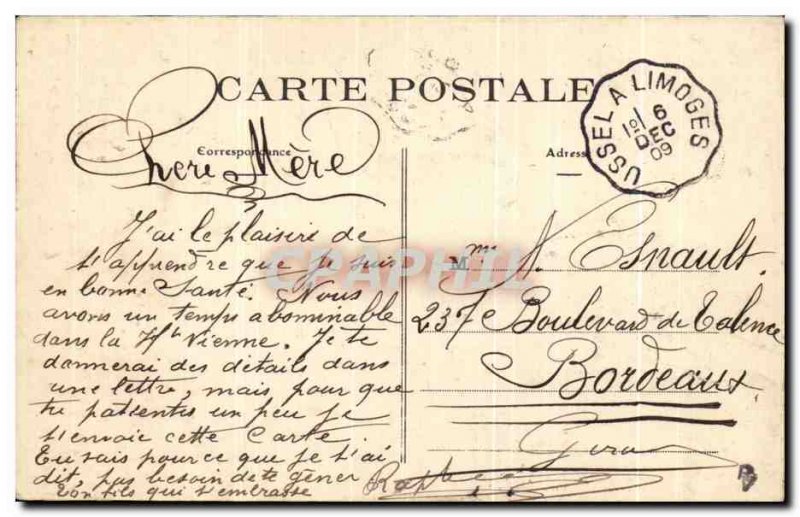 CARTE POSTALE
USSEL A LIMOGES
1º 6
DEC
09
Correspondance
Adresse
Chere Mère
J'ai le plaisire de
t'apprendre que je suis
en bonne Santé. Nous
avons un temps abominable
dans la Hte Vienne. Je te
donnerai des détails dans
une lettre, mais pour que
tu patientes un peu je
t'envoie cette Carte.
Tu sais pour ce que je t'ai
dit, pas besoin de te gêner
Ton fils qui t'embrasse
Mme N. Esnault.
237 e Boulevard de Talence
Bordeaux
CPAPHIL